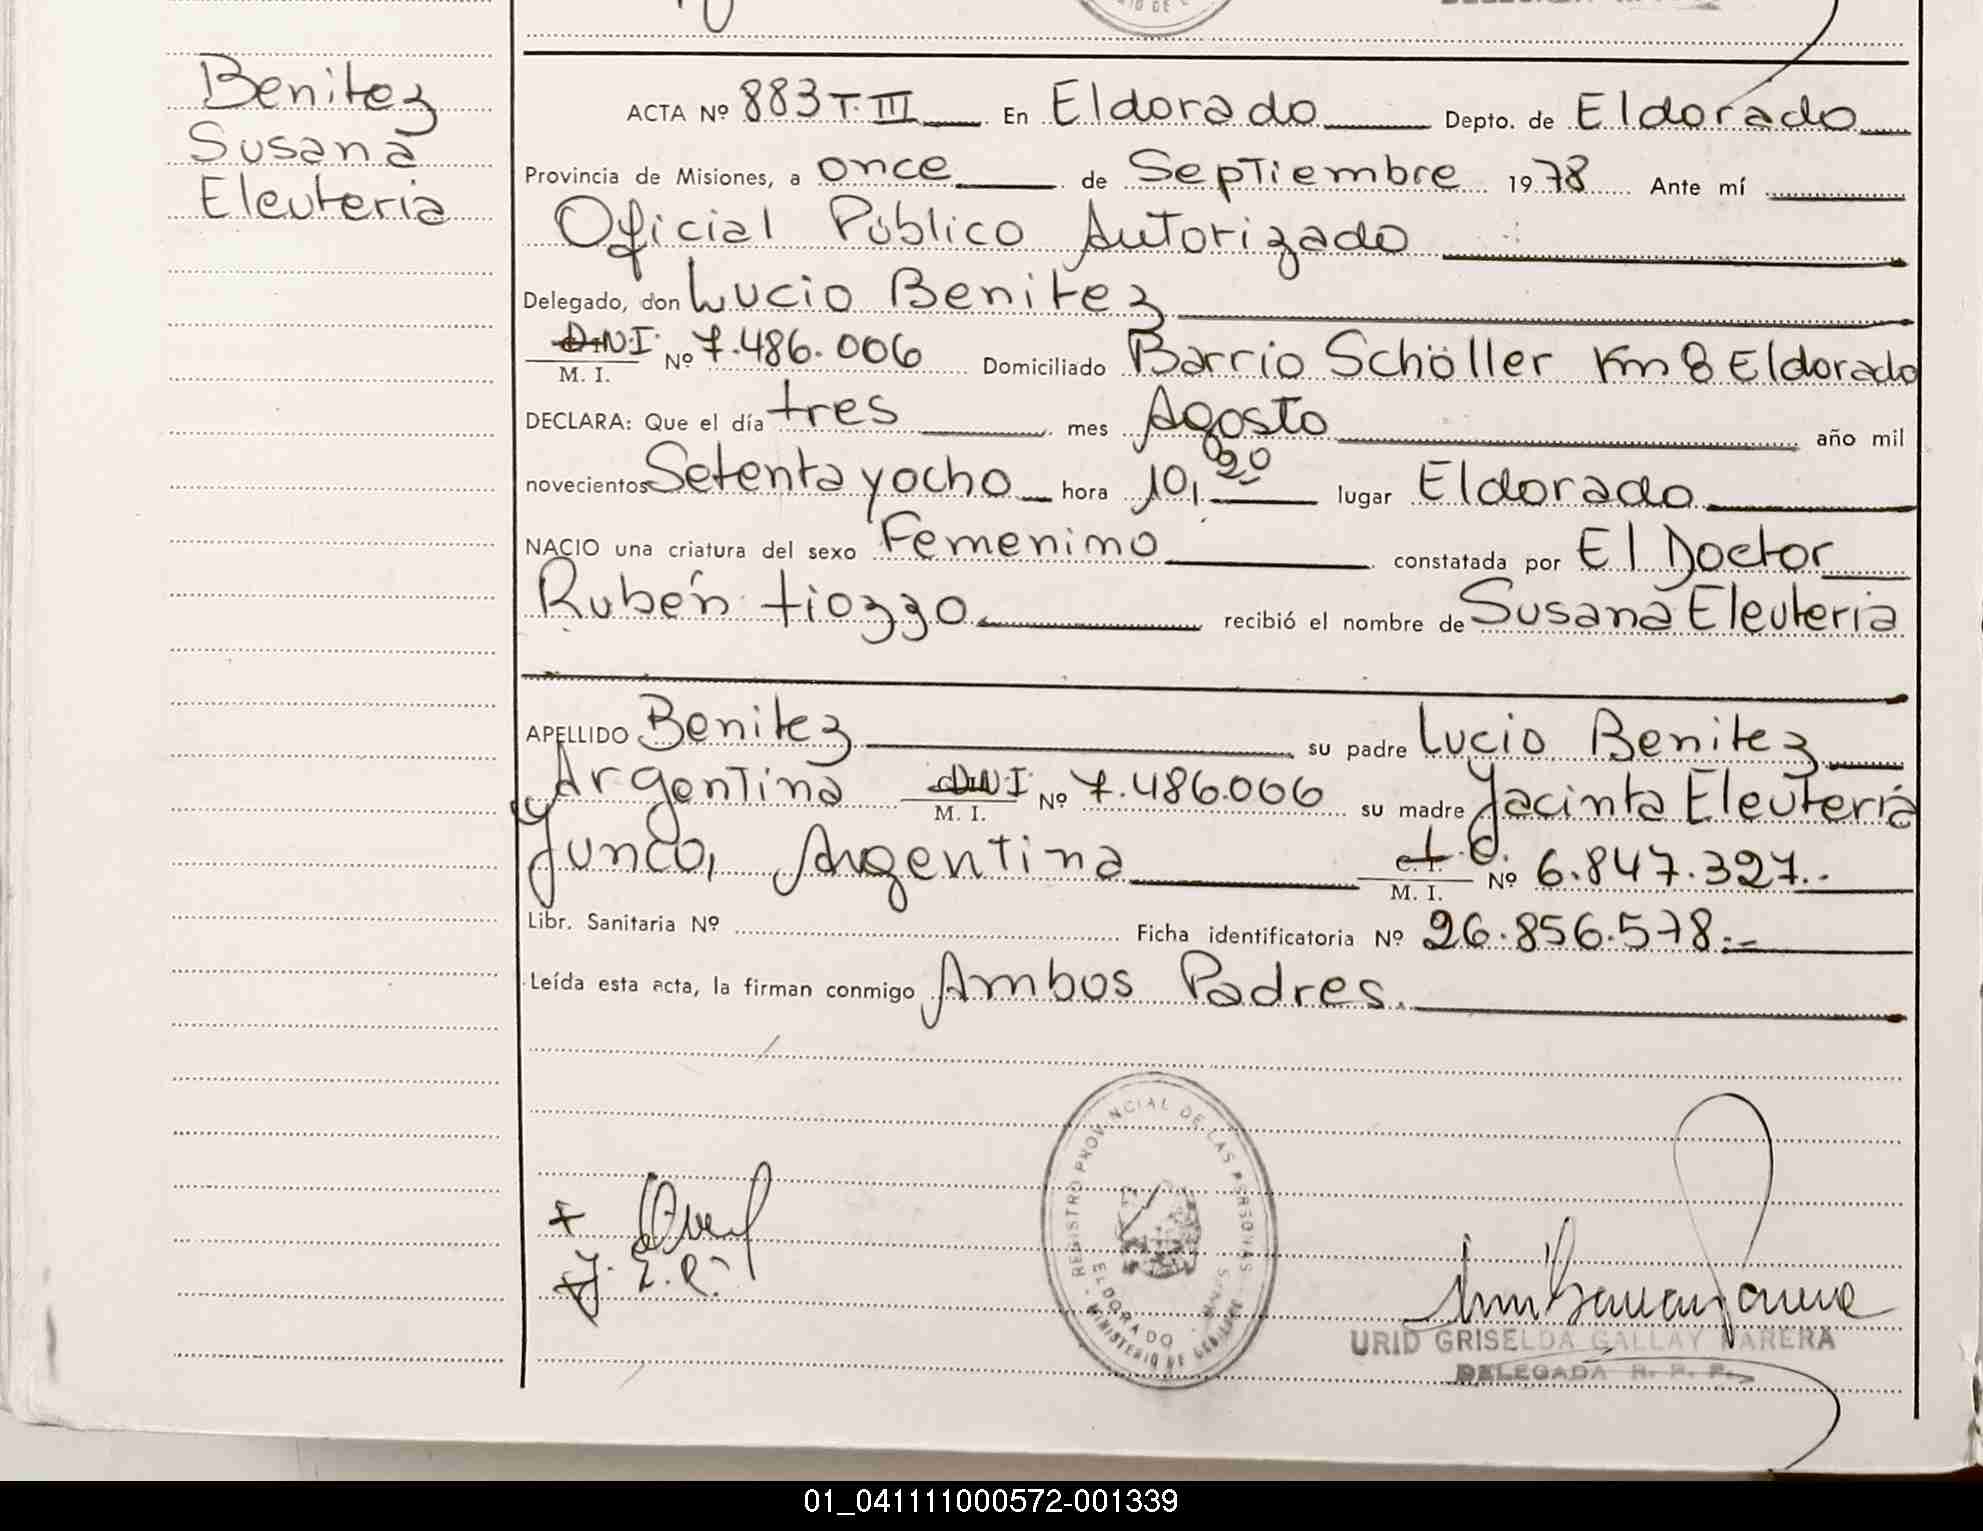 Benitez
Susana
Eleuteria
ACTA Nº 883 T. III En Eldorado Depto. de Eldorado
Provincia de Misiones, a once de Septiembre 1978 Ante mí
Oficial Público Autorizado
Delegado, don Lucio Benitez
D.N.I. Nº 7.486.006 Domiciliado Barrio Schöller Km 8 Eldorado
M. I.
DECLARA: Que el día tres mes Agosto año mil
novecientos Setenta y ocho hora 10,20 lugar Eldorado
NACIO una criatura del sexo Femenino constatada por El Doctor
Rubén Tiozzo recibió el nombre de Susana Eleuteria
APELLIDO Benitez su padre Lucio Benitez
Argentina DNI Nº 7.486.006 su madre Jacinta Eleuteria
M. I.
Junco, Argentina L.C. Nº 6.847.327.-
M. I.
Libr. Sanitaria Nº Ficha identificatoria Nº 26.856.578.-
Leída esta acta, la firman conmigo Ambos Padres.
REGISTRO PROVINCIAL DE LAS PERSONAS
ELDORADO
MINISTERIO DE GOBIERNO
URID GRISELDA GALLAY PARERA
DELEGADA R. P. P.
01_041111000572-001339